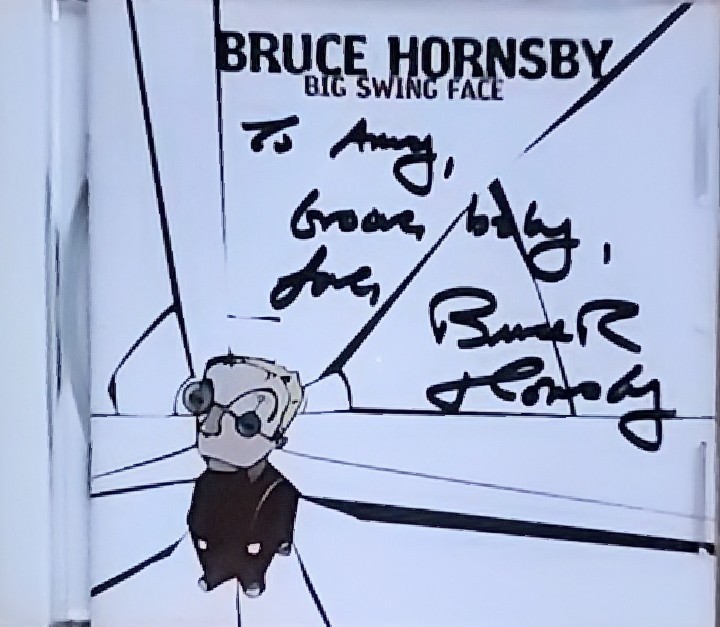 BRUCE HORNSBY
BIG SWING FACE
To Amy,
Groove baby,
Love,
Bruce R
Hornsby